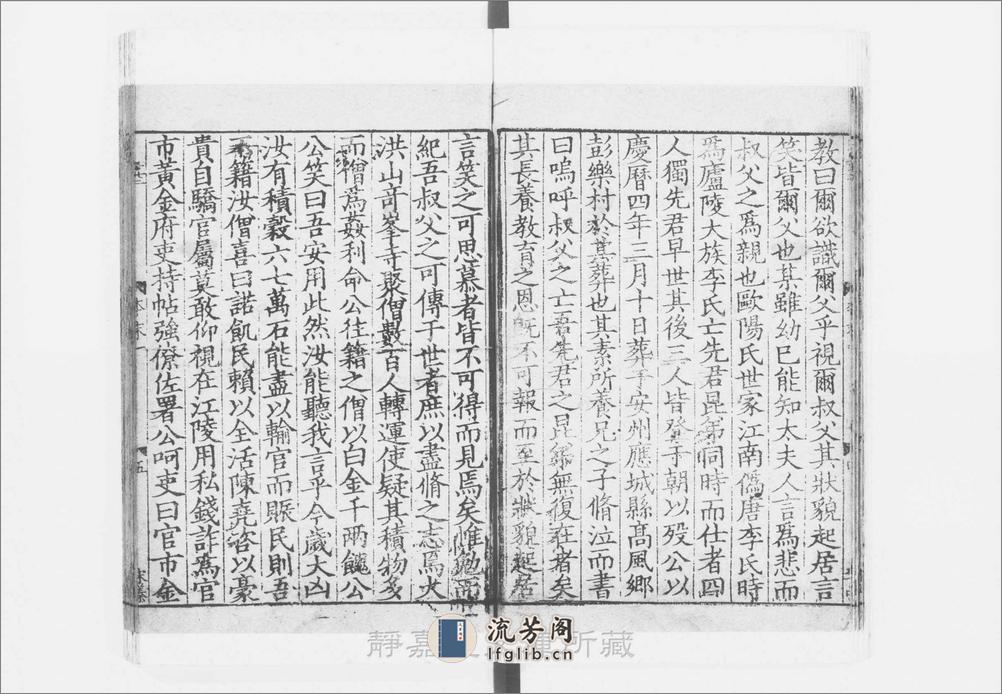 教曰爾欲識爾父乎視爾叔父其狀貌起居言
笑皆爾父也某雖幼已能知太夫人言爲悲而
叔父之爲親也歐陽氏世家江南僞唐李氏時
爲廬陵大族李氏亡先君昆弟同時而仕者四
人獨先君早世其後三人皆登于朝以歿公以
慶曆四年三月十日葬于安州應城縣髙風鄉
彭樂村於其葬也其素所養兄之子脩泣而書
曰嗚呼叔父之亡吾先君之昆弟無復在者矣
其長養教育之恩旣不可報而至於狀貌起居
言笑之可思慕者皆不可得而見焉矣惟勉而
紀吾叔父之可傳于世者庶以盡脩之志焉大
洪山竒峯寺聚僧數百人轉運使疑其積物多
而僧爲姦利命公往籍之僧以白金千兩餽公
公笑曰吾安用此然汝能聽我言乎今歲大凶
汝有積穀六七萬石能盡以輸官而賑民則吾
不籍汝僧喜曰諾飢民賴以全活陳堯咨以豪
貴自驕官屬莫敢仰視在江陵用私錢詐爲官
市黃金府吏持帖強僚佐署公呵吏曰官市金
五
靜嘉 所藏
流芳阁
lfglib.cn